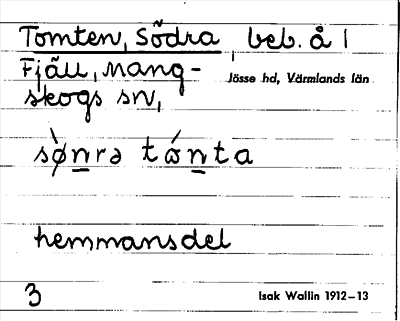 Tomten, Södra, beb. å |
Fjäll, Mang-
skogs sn,
Jösse hd, Värmlands län
sø̀nrə tɷ́nta
hemmansdel
3
Isak Wallin 1912–13